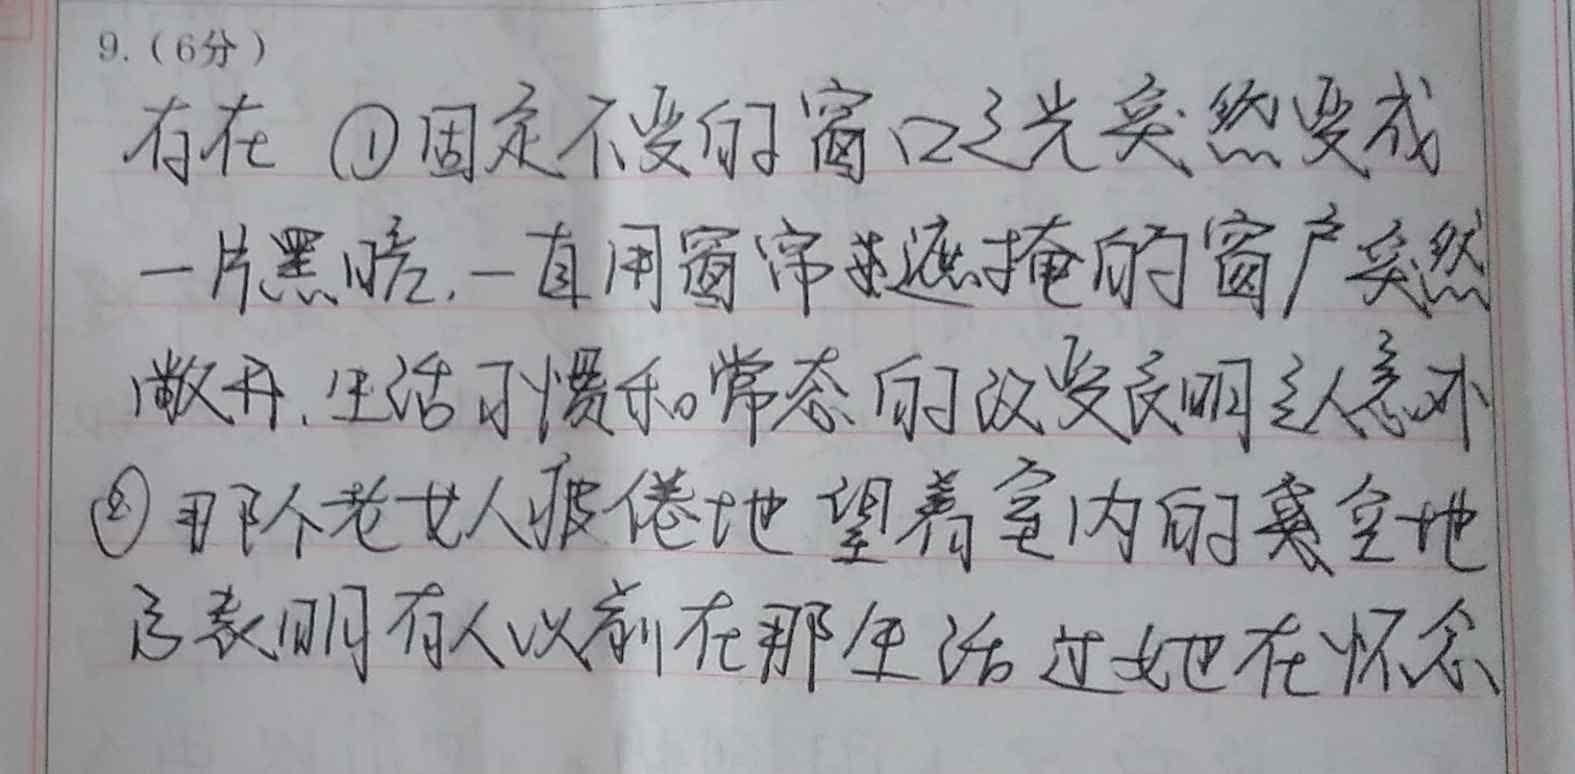 9.(6分)
存在 ①固定不变的窗口之光突然变成
一片黑暗.一直用窗帘遮掩的窗户突然
敞开.生活习惯和常态的改变表明主人意外
②那个老女人疲倦地望着室内的空地
表明有人以前在那生活过她在怀念